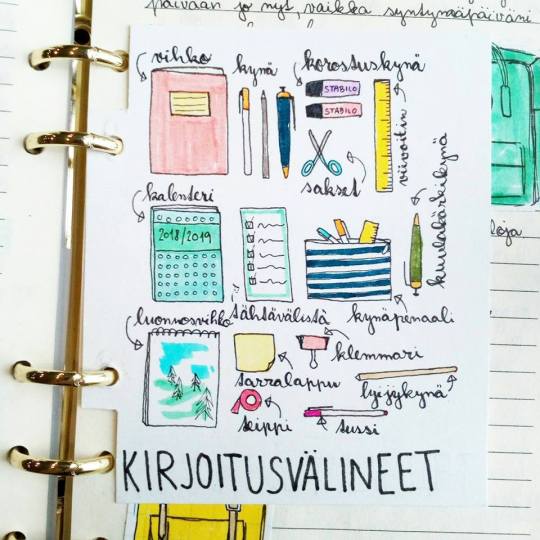 päivään jo nyt, vaikka syntymäpäiväni
vihko
kynä
korostuskynä
STABILO
STABILO
viivoitin
sakset
kuulakärkikynä
kalenteri
2018/2019
tähtävälistä
kynäpenaali
luonnosvihko
tarralappu
klemmari
lyijykynä
teippi
tussi
KIRJOITUSVÄLINEET